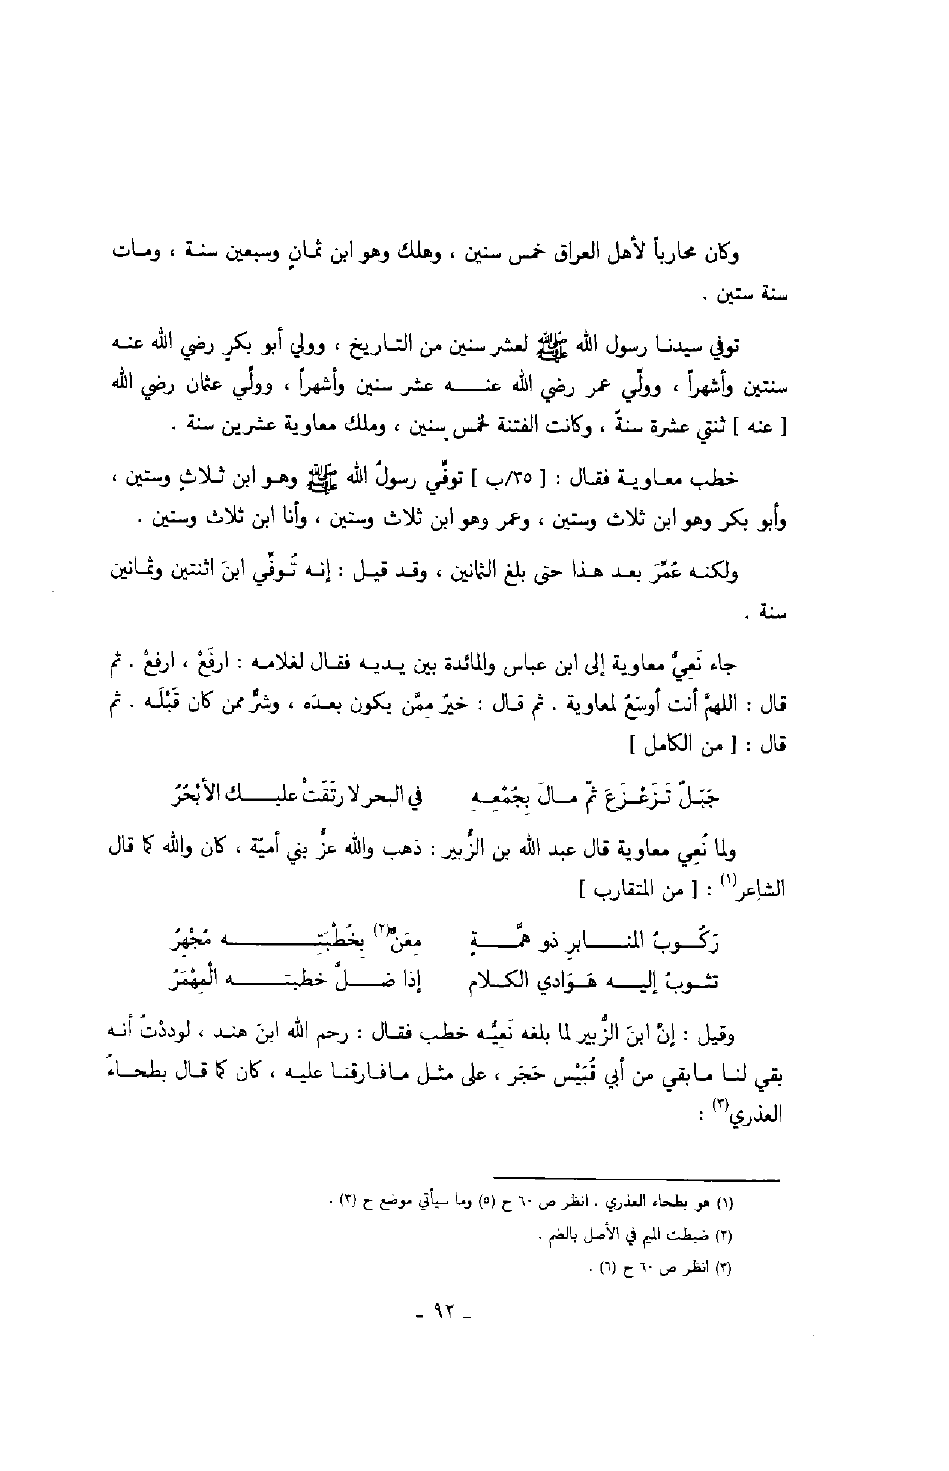 وكان محارباً لأهل العراق خمس سنين ، وهلك وهو ابن ثمانٍ وسبعين سنة ، ومات
سنة ستين .
توفي سيدنا رسول الله ﷺ لعشر سنين من التاريخ ، وولي أبو بكرٍ رضي الله عنه
سنتين وأشهراً ، وولّي عمر رضي الله عنه عشر سنين وأشهراً ، وولّي عثمان رضي الله
[ عنه ] ثنتي عشرة سنةً ، وكانت الفتنة خمس سنين ، وملك معاوية عشرين سنة .
خطب معاوية فقال : [ ٣٥/ب ] توفّي رسولُ الله ﷺ وهو ابن ثلاثٍ وستين ،
وأبو بكر وهو ابن ثلاث وستين ، وعمر وهو ابن ثلاث وستين ، وأنا ابن ثلاث وستين .
ولكنه عُمِّرَ بعد هذا حتى بلغ الثمانين ، وقد قيل : إنه تُوفّي ابنَ اثنتين وثمانين
سنة .
جاء نَعيُّ معاوية إلى ابن عباس والمائدة بين يديه فقال لغلامه : ارفَعْ ، ارفعْ . ثم
قال : اللهمَّ أنت أوسَعُ لمعاوية . ثم قال : خيرٌ مِمَّن يكون بعدَه ، وشرٌّ ممن كان قَبْلَه . ثم
قال : [ من الكامل ]
جَبَلٌ تَزَعْزَعَ ثمّ مالَ بِجَمْعِهِ في البحر لا رتَقَتْ عليك الأبْحُرُ
ولما نُعِي معاوية قال عبد الله بن الزُّبير : ذهب والله عزُّ بني أميّة ، كان والله كما قال
الشاعر(١) : [ من المتقارب ]
رَكُوبُ المنابرِ ذو همَّةٍ مِعَنٌّ(٢) بِخُطْبَتِه مُجْهِرُ
تثوبُ إليه هَوَادي الكلام إذا ضلَّ خطبته الْمِهْمَرُ
وقيل : إنّ ابنَ الزُّبير لما بلغه نَعيُّه خطب فقال : رحم الله ابنَ هند ، لوددْتُ أنه
بقي لنا مابقي من أبي قُبَيْس حَجَر ، على مثل مافارقنا عليه ، كان كما قال بطحاءُ
العذري(٣) :
(١) هو بطحاء العذري . انظر ص ٦٠ ح (٥) وما سيأتي موضع ح (٣) .
(٢) ضبطت الميم في الأصل بالضم .
(٣) انظر ص ٦٠ ح (٦) .
- ٩٢ -